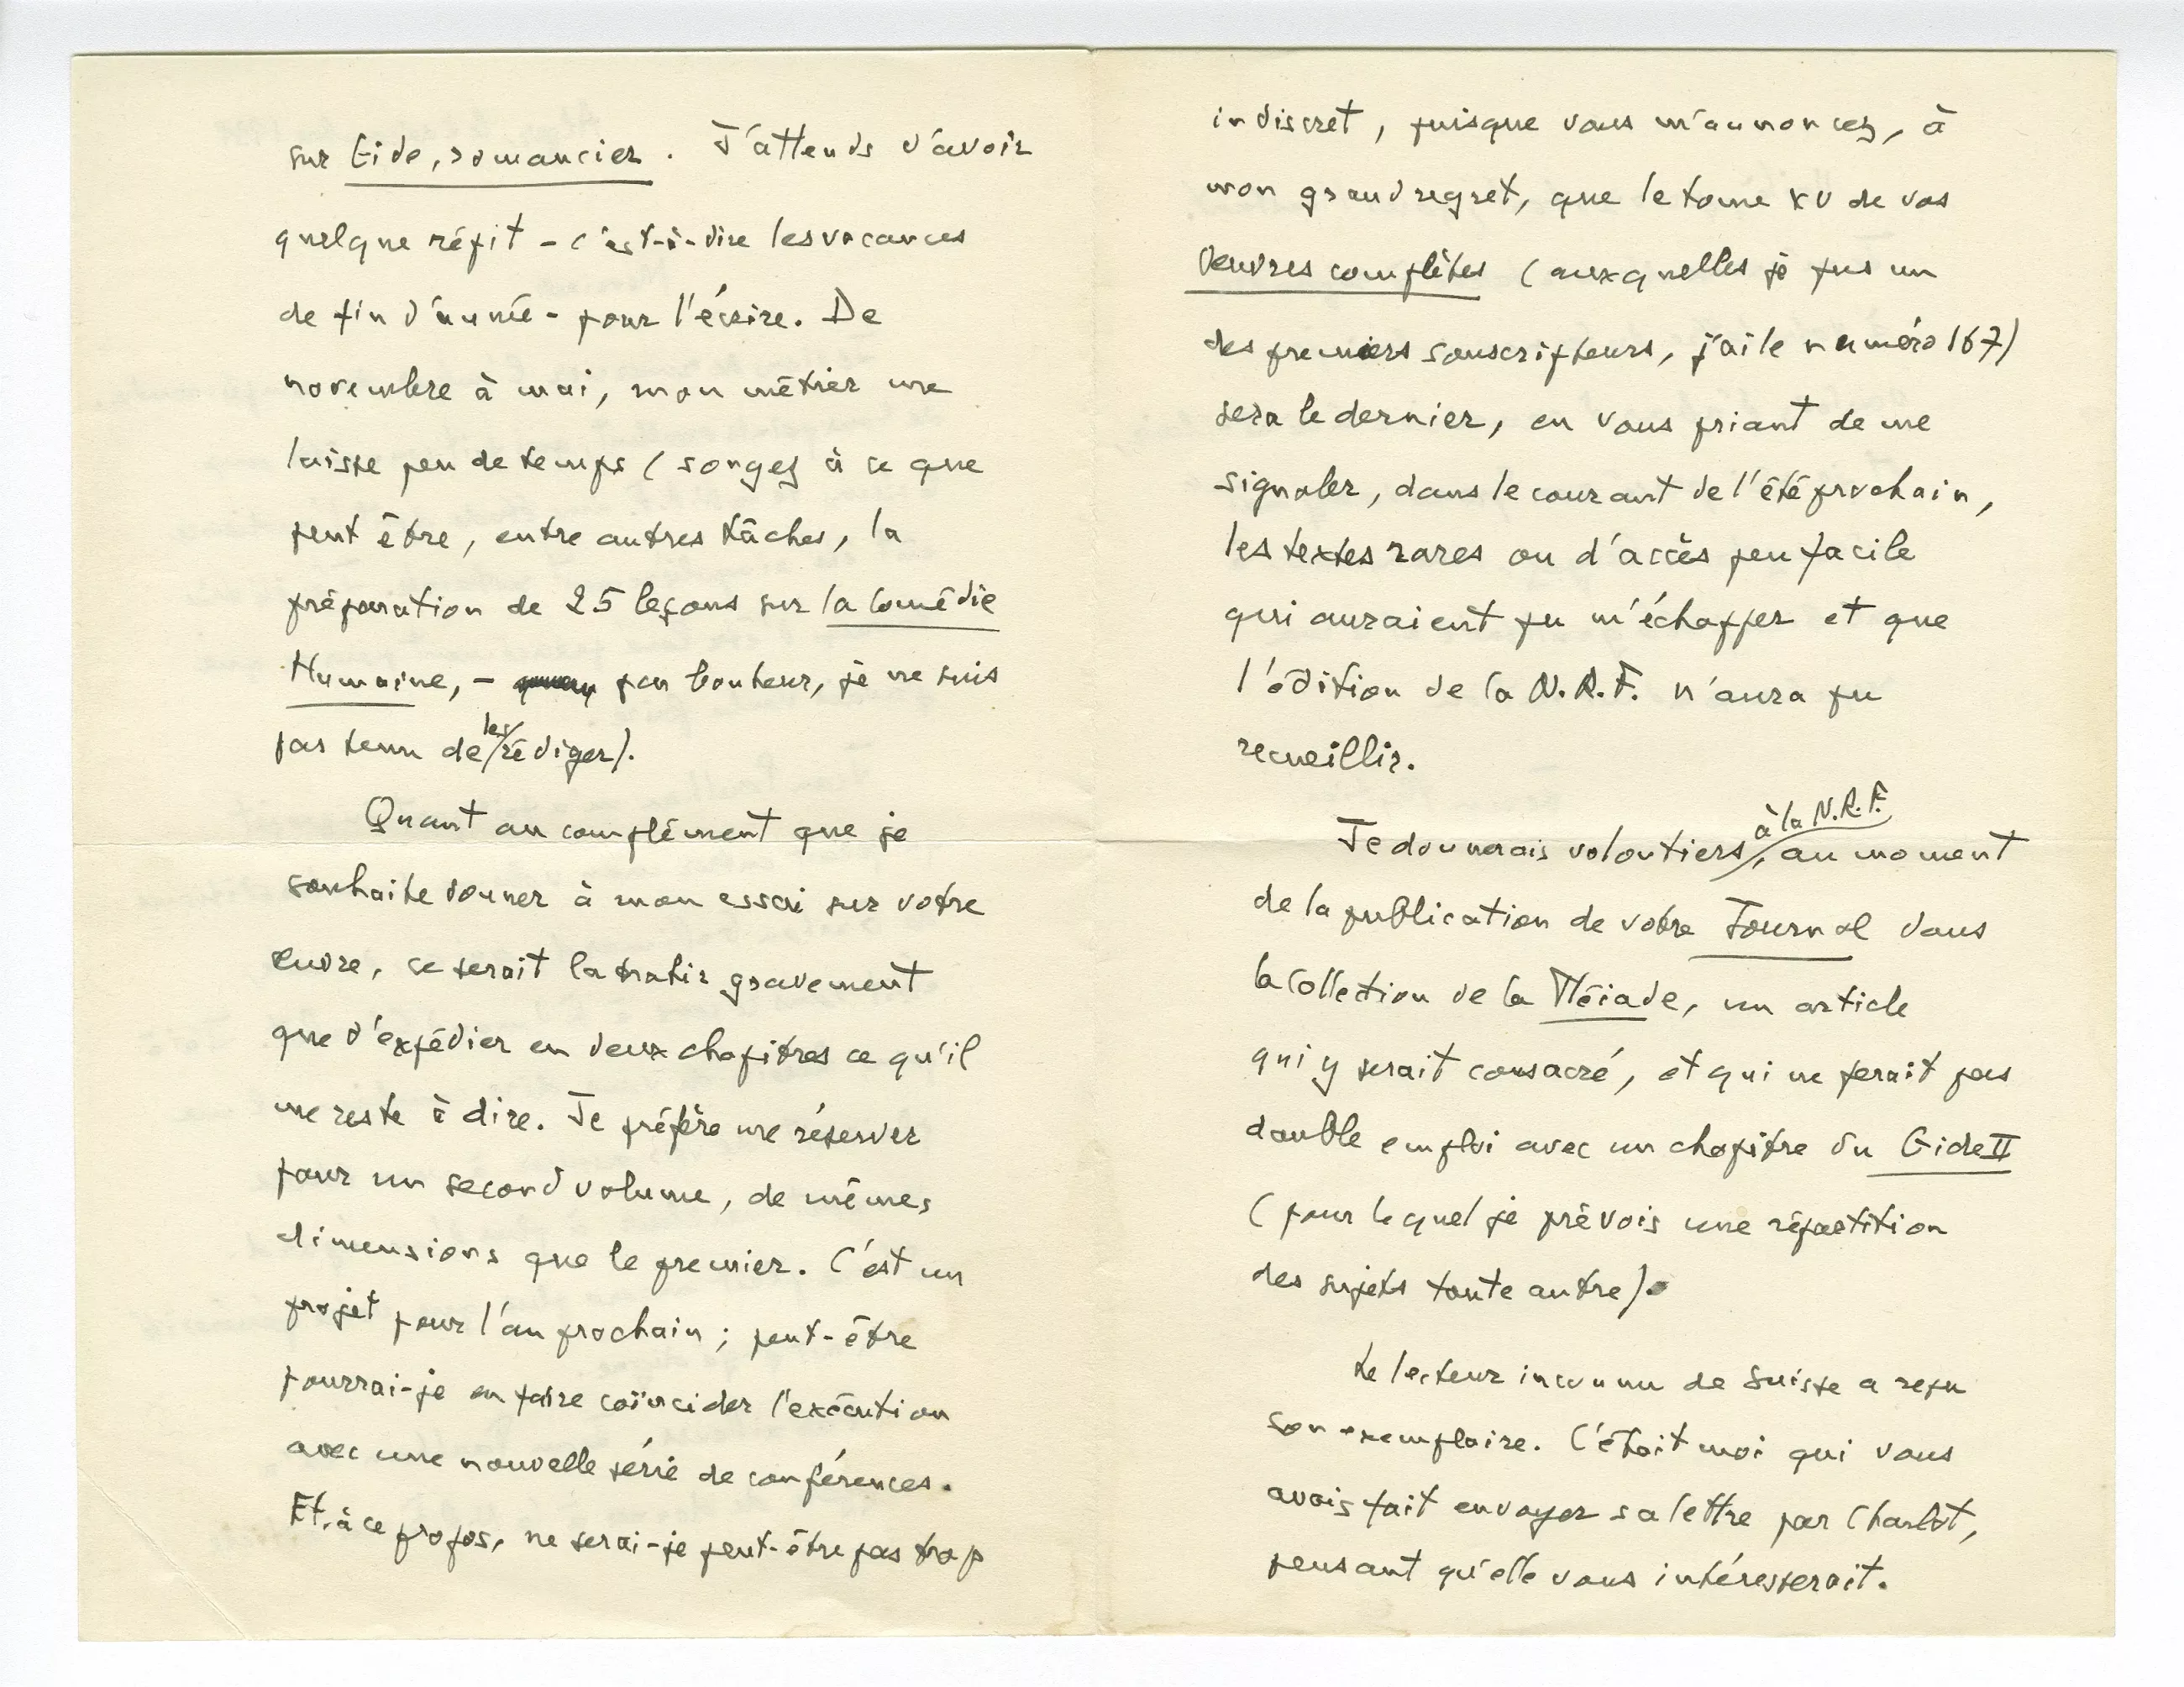 sur Gide, romancier. J'attends d'avoir
quelque répit - c'est-à-dire les vacances
de fin d'année - pour l'écrire. De
novembre à mai, mon métier me
laisse peu de temps (songez à ce que
peut être, entre autres tâches, la
préparation de 25 leçons sur la Comédie
Humaine, - par bonheur, je ne suis
pas tenu de les rédiger).
Quant au complément que je
souhaite donner à mon essai sur votre
œuvre, ce serait la trahir gravement
que d'expédier en deux chapitres ce qu'il
me reste à dire. Je préfère me réserver
pour un second volume, de mêmes
dimensions que le premier. C'est un
projet pour l'an prochain ; peut-être
pourrai-je en faire coïncider l'exécution
avec une nouvelle série de conférences.
Et, à ce propos, ne serai-je peut-être pas trop
indiscret, puisque vous m'annoncez, à
mon grand regret, que le tome XV de vos
Oeuvres complètes (auxquelles je fus un
des premiers souscripteurs, j'ai le numéro 167)
sera le dernier, en vous priant de me
signaler, dans le courant de l'été prochain,
les textes rares ou d'accès peu facile
qui auraient pu m'échapper et que
l'édition de la N.R.F. n'aura pu
recueillir.
Je donnerais volontiers, à la N.R.F. au moment
de la publication de votre Journal dans
la collection de la Pléiade, un article
qui y serait consacré, et qui ne ferait pas
double emploi avec un chapitre du Gide II
(pour lequel je prévois une répartition
des sujets toute autre).
Le lecteur inconnu de Suisse a reçu
son exemplaire. C'était moi qui vous
avais fait envoyer sa lettre par Charlot,
pensant qu'elle vous intéresserait.